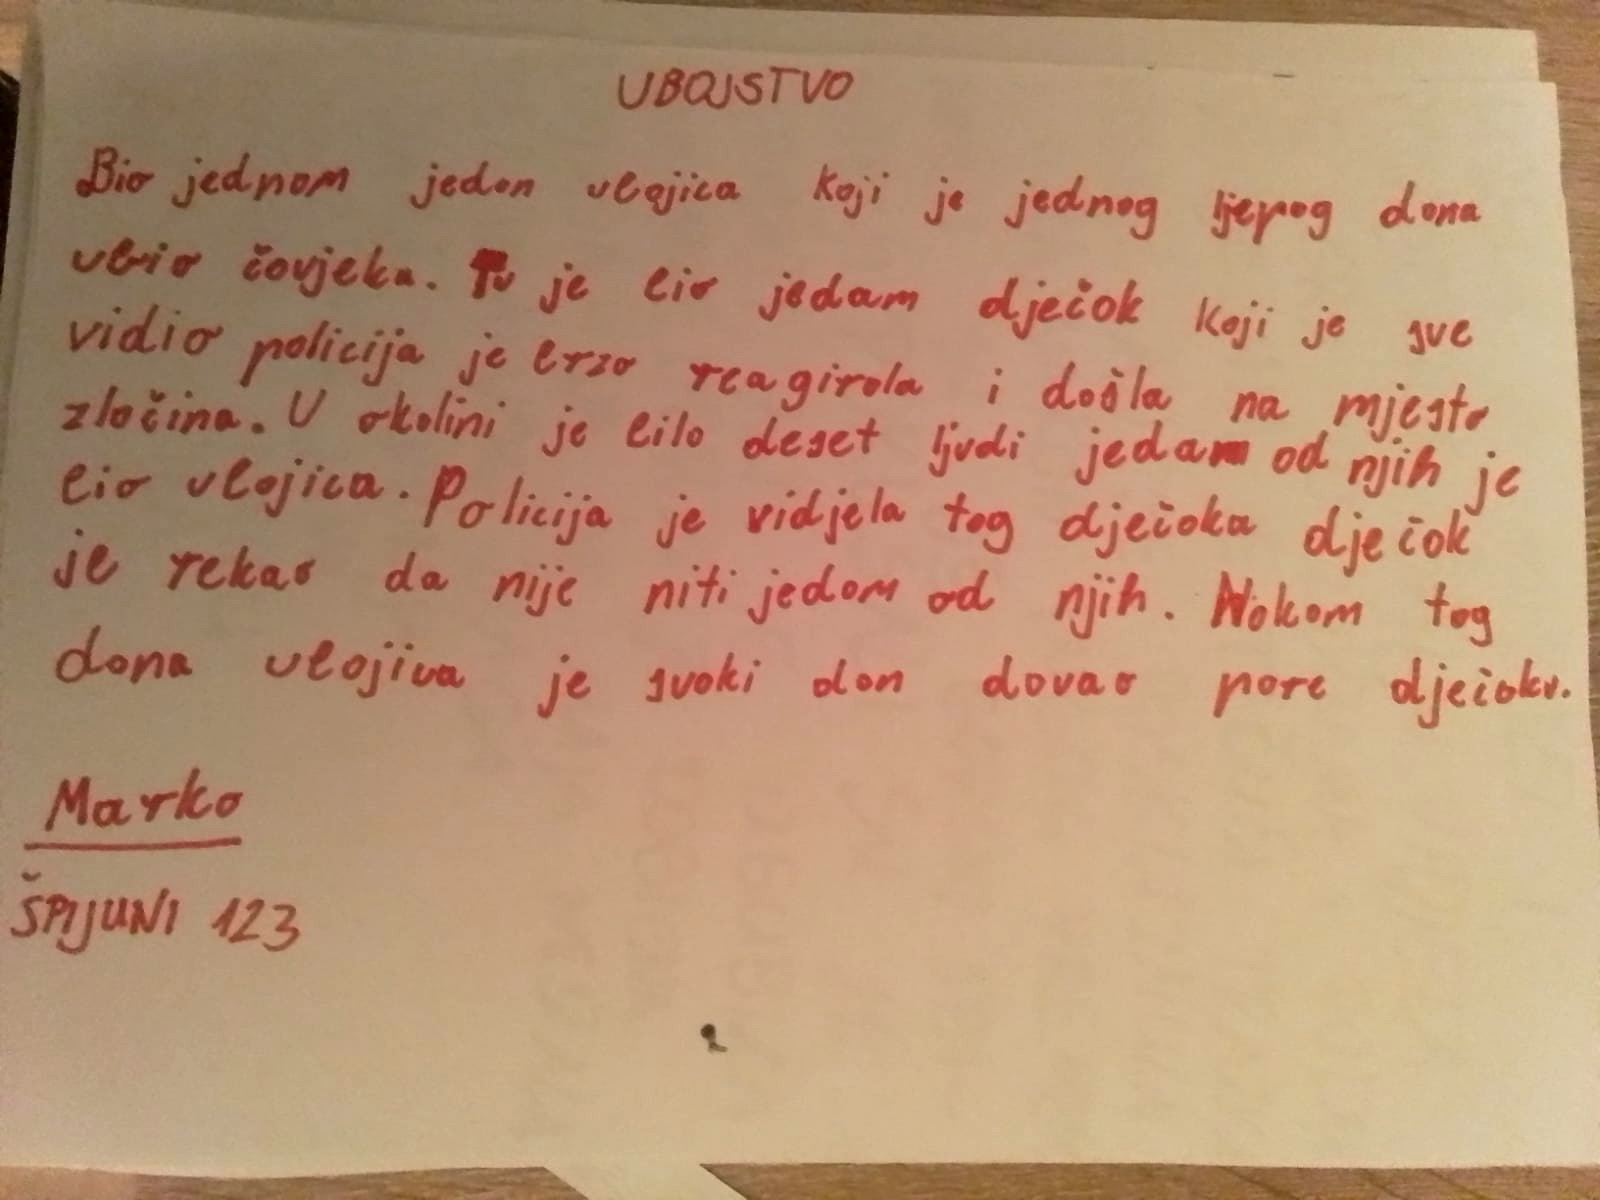 UBOJSTVO
Bio jednom jedan ubojica koji je jednog ljepog dana
ubio čovjeka. Tu je bio jedam dječak koji je sve
vidio policija je brzo reagirala i došla na mjesto
zločina. U okolini je bilo deset ljudi jedam od njih je
bio ubojica. Policija je vidjela tog dječaka dječak
je rekao da nije niti jedam od njih. Nakom tog
dana ubojiva je svaki dan davao pare dječaku.
Marko
ŠPIJUNI 123